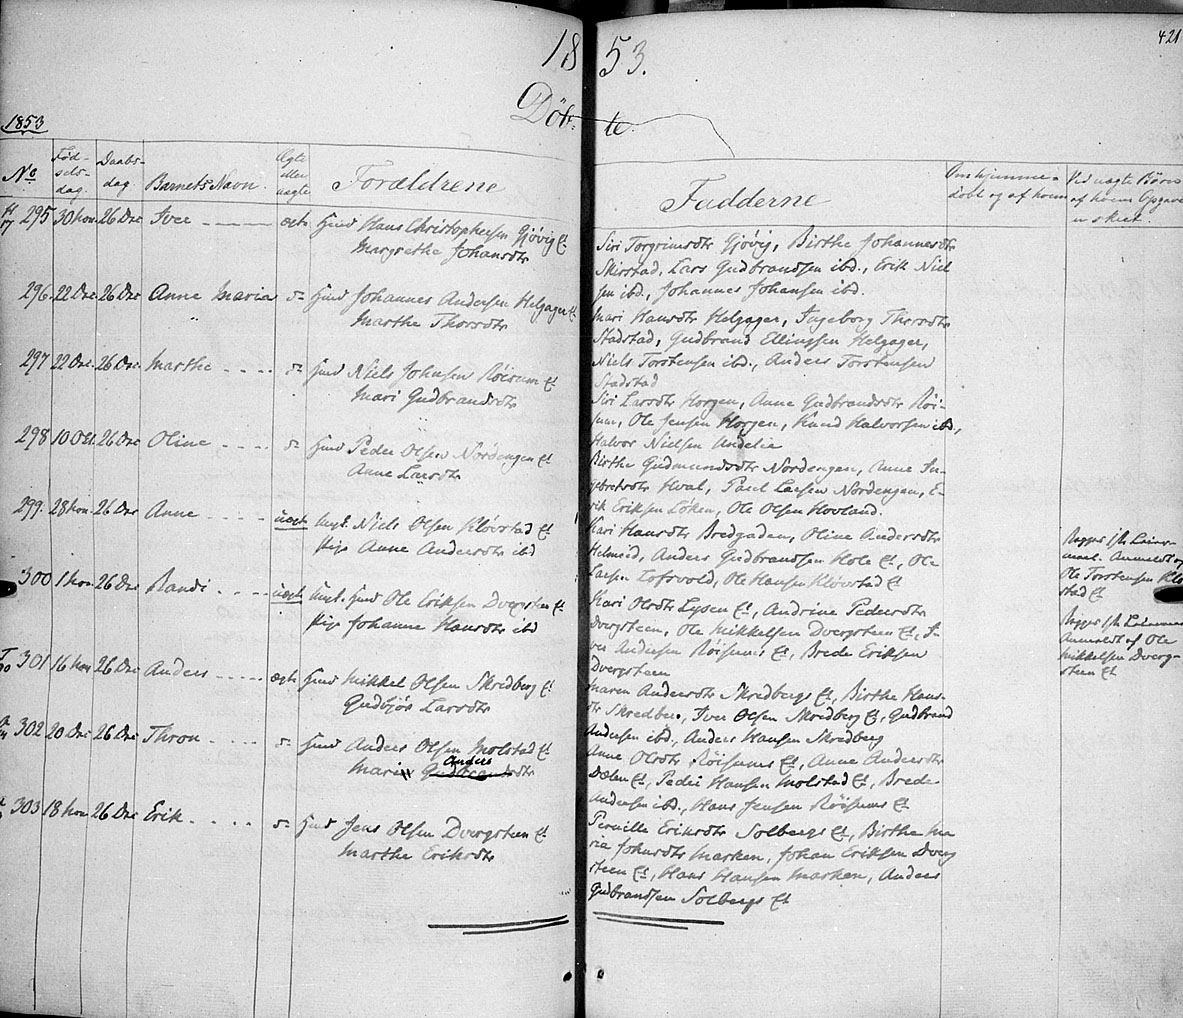 1853.
421
Döb- te.
1853
No
Fød-
sels-
dag.
Daabs-
dag
Barnets Navn.
Ægte
eller
uægte
Forældrene
Fadderne
Om hjemme-
døbt og af hvem
Ved uægte Børn
af hvem Opgave
295 30 Nov. 26 Dec Iver ægte Hans Christophersen Gjövig Et
Margrethe Johansdtr
Siri Torgrimsdtr Gjövig, Birthe Johannesdtr
Skirstad, Lars Gudbrandsen ibd., Erik Niel
sen ibd., Johannes Johansen ibd.
296. 22 Dec. 26 Dec Anne Maria Johannes Andersen Helgager Et
Marthe Thorsdtr
Mari Hansdtr Helgager, Ingeborg Thorsdtr
Stadstad, Gudbrand Ellingsen Helgager,
Niels Torstensen ibd., Anders Torstensen
Stadstad
297 22 Dec. 26 Dec Marthe Niels Johnsen Röisum Et
Mari Gudbrandsdtr
Siri Larsdtr Horgen, Anne Gudbrandsdtr Röi-
sum, Ole Jensen Horgen, Knud Halvorsen ibd.,
Halvor Nielsen
298 10 Oct. 26 Dec Oline Peder Olsen Nordengen Et
Anne Larsdtr
Birthe Gudmundsdtr Nordengen, Anne In-
gebretsdtr Hval, Paul Larsen Nordengen, E-
rik Eriksen Löken, Ole Olsen Hovland.
299. 28 Nov. 26 Dec Anne uægte Ungk. Niels Olsen Klövstad Et
Pige Anne Andersdtr ibd
Kari Hansdtr Bredgaden, Oline Andersdtr
Anders Gudbrandsen Hole Et, Ole
Larsen Lofsvold, Ole Hansen Klövstad Et
Anmeldt af
Ole Torstensen Klöv
stad Et
300 1 Nov. 26 Dec Randi uægte Ungk. Ole Eriksen Dvergsteen Et
Pige Johanne Hansdtr ibd
Kari Olsdtr Lysen Et, Andrine Pedersdtr
Dvergsteen, Ole Mikkelsen Dvergsteen Et, I-
ver Andersen Röisums Et, Brede Eriksen
Dvergsteen
Anmeldt af Ole
Mikkelsen Dverg-
steen Et
301 16 Nov 26 Dec Anders ægte Mikkel Olsen Skredberg Et
Gudbjör Larsdtr
Maren Andersdtr Skredbergs Et, Birthe Hans-
dtr Skredberg, Iver Olsen Skredberg Et, Gudbrand
Andersen ibd., Anders Hansen Skredberg
302 20 Dec 26 Dec Thron Anders Olsen Molstad Et
Anders
Mari Gudbrandsdtr
Anne Olsdtr Röisums Et, Anne Andersdtr
Dælen Et, Peder Hansen Molstad Et, Brede
Andersen ibd., Hans Jensen Röisums Et
303 18 Nov. 26 Dec Erik Jens Olsen Dvergsteen Et
Marthe Eriksdtr
Pernille Eriksdtr Solbergs Et, Birthe Ma
ria Johnsdtr Marken, Johan Eriksen Dverg
steen Et, Hans Hansen Marken, Anders
Gudbrandsen Solbergs Et